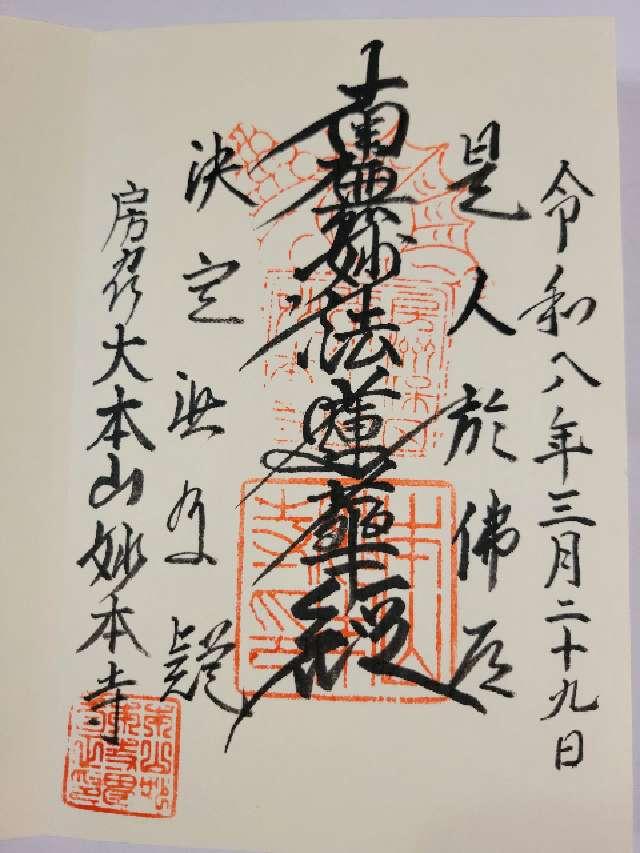 令和八年三月二十九日
是人於佛道
南無妙法蓮華経
決定無有疑
房州大本山妙本寺